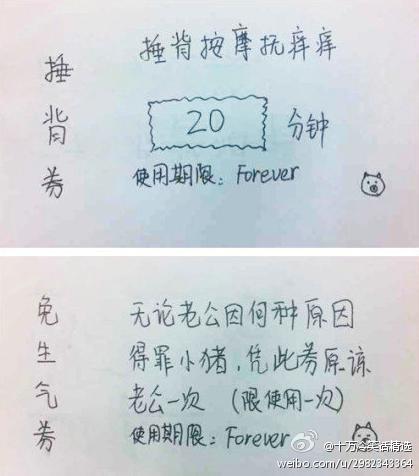 捶背券
捶背按摩抚痒痒
20 分钟
使用期限：Forever
免生气券
无论老公因何种原因
得罪小猪，凭此券原谅
老公一次（限使用一次）
使用期限：Forever
@十万冷笑话精选
weibo.com/u/2982343364